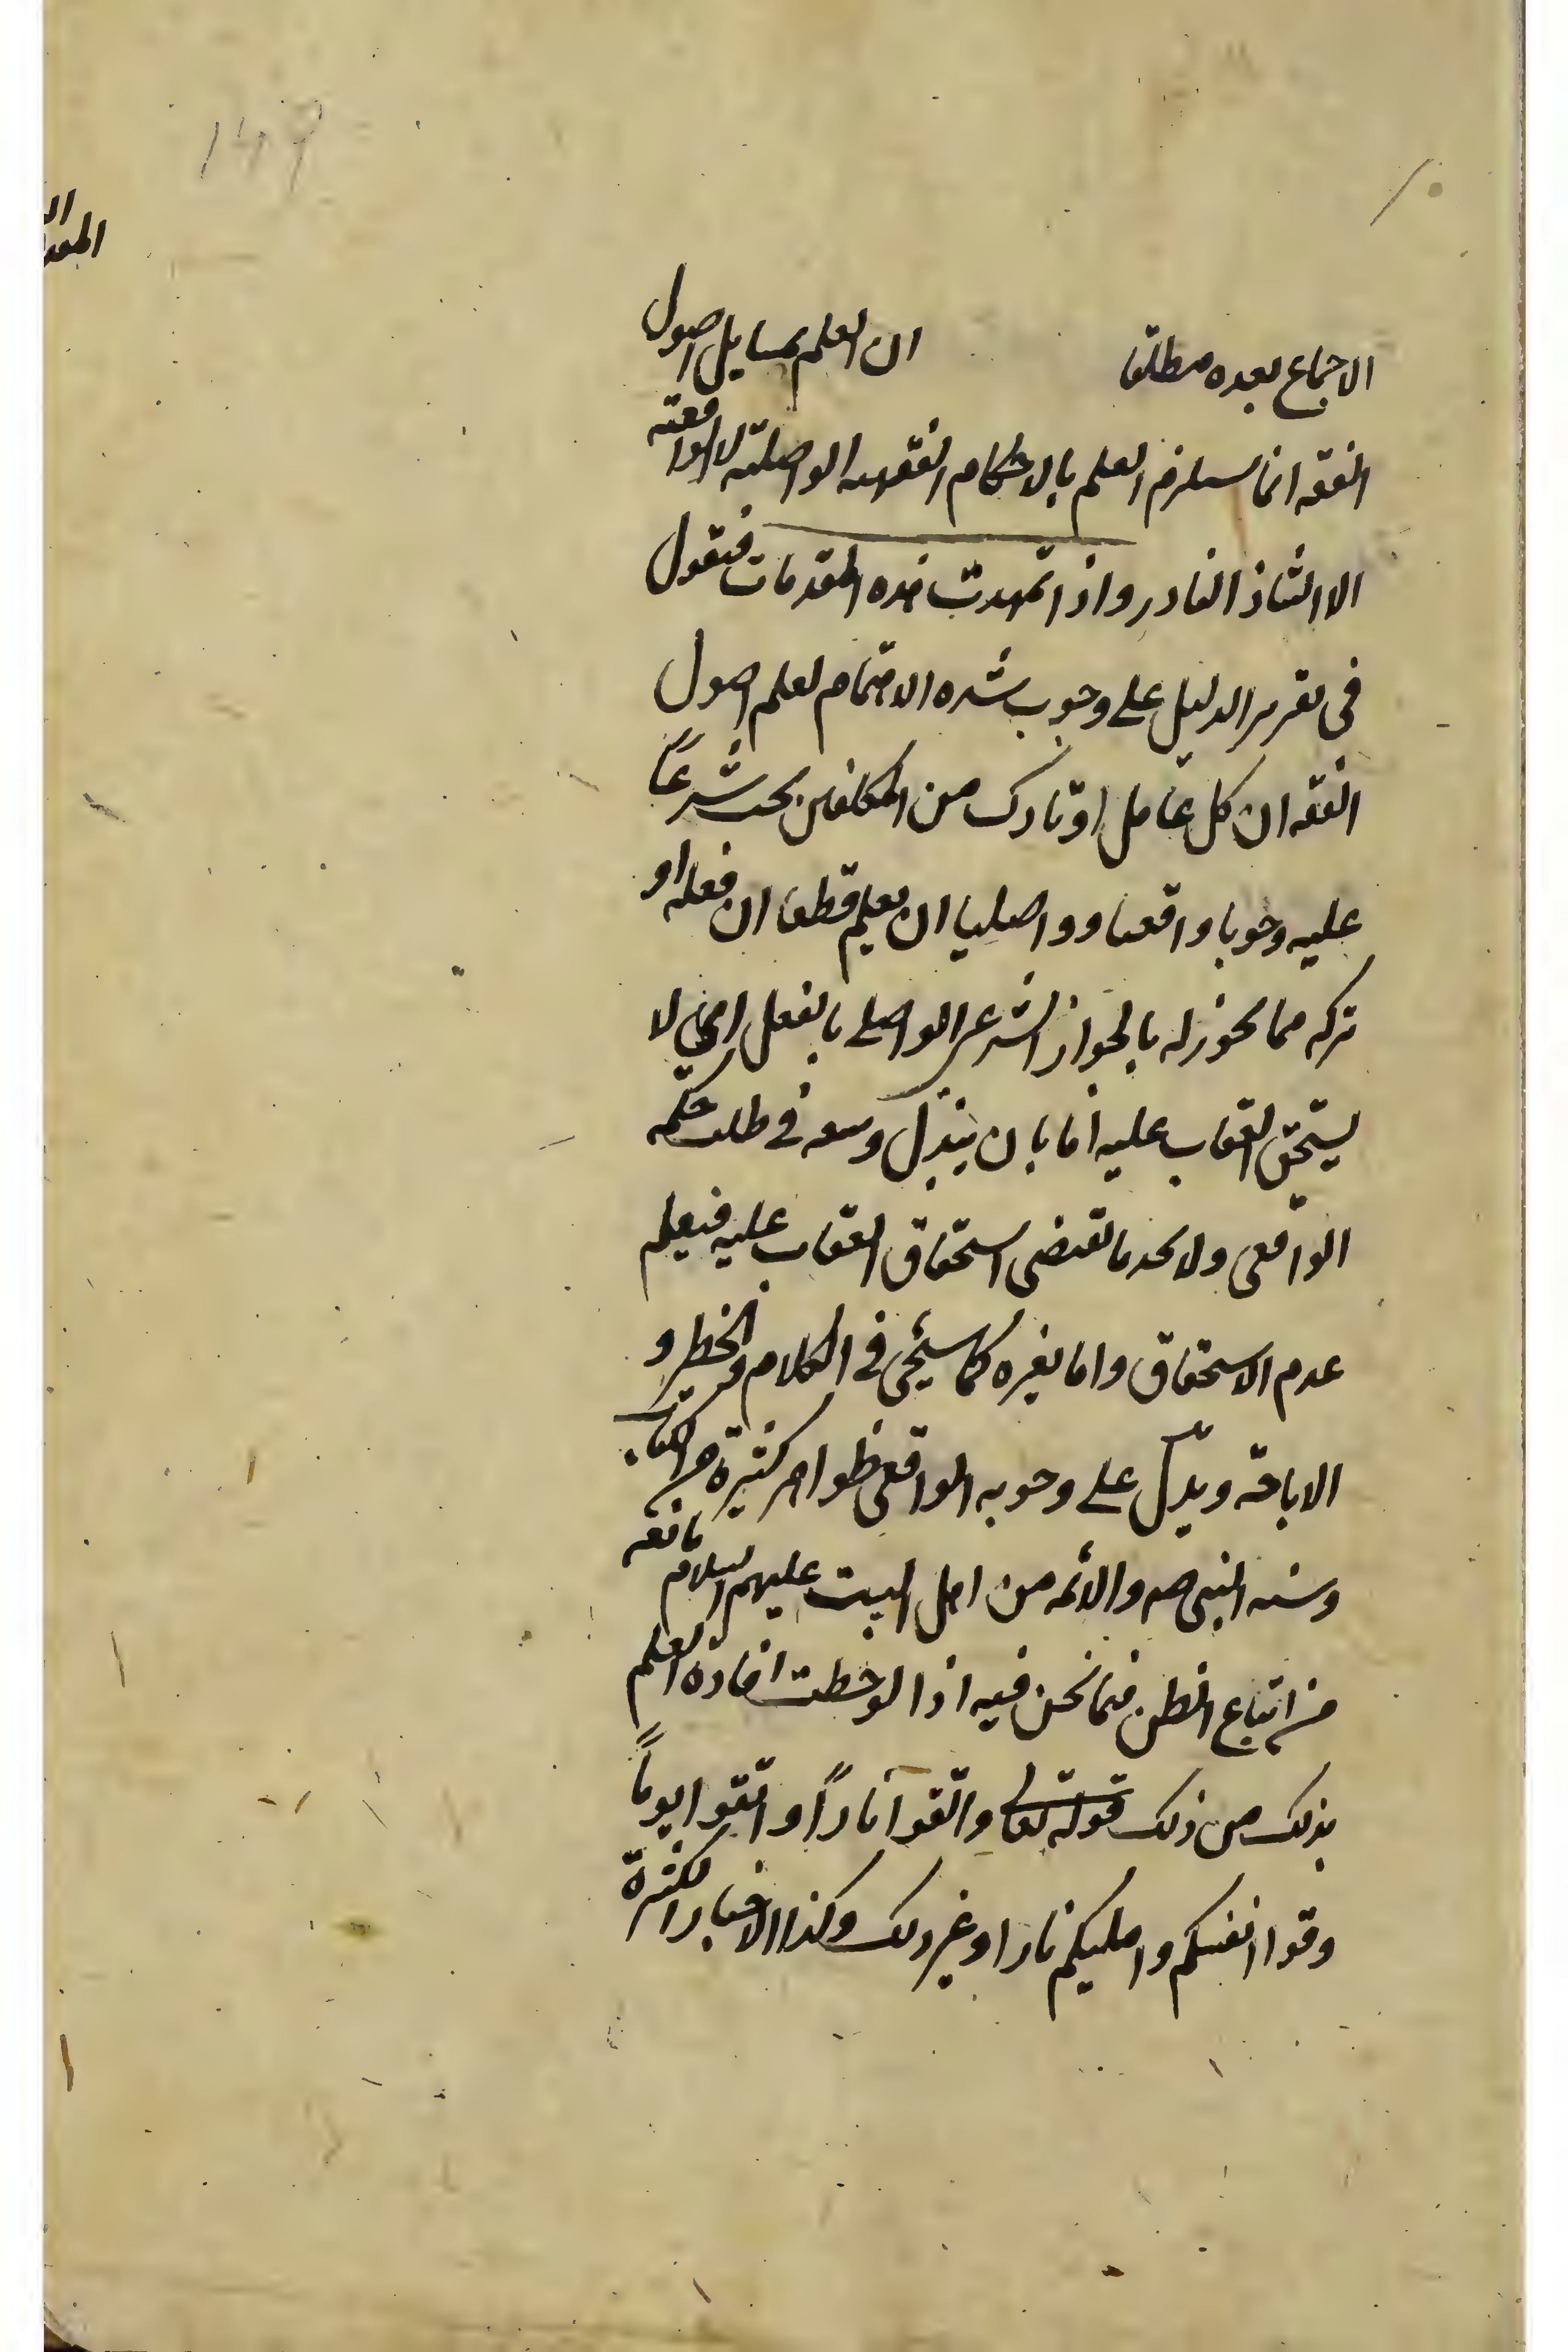 الاجماع بعده مطلقا ان العلم بمسايل اصول
الفقه انما يستلزم العلم بالاحكام الفقهيه الواصليّه لا الواقعيّه
الا الشاذ النادر واذا تمهدت هذه المقدمات فنقول
فى تقرير الدليل على وجوب شده الاهتمام لعلم اصول
الفقه ان كل عامل او تارك من المكلفين يجب شرعاً
عليه وجوبا واقعيا وواصليا ان يعلم قطعا ان فعله او
تركه مما يجوز له بالجواز الشرعى الواصلى بالفعل اى لا
يستحق العقاب عليه اما بان يبذل وسعه فى طلب حكمه
الواقعى ولا يجد ما يقتضى استحقاق العقاب عليه فيعلم
عدم الاستحقاق واما بغيره كما سيجئ فى الكلام فى الحظر و
الاباحة ويدلّ على وجوبه الواقعى ظواهر كثيرة من الكتاب
وسنه النبى صم والائمه من اهل البيت عليهم السلام مانعه
من اتباع الظن فيما نحن فيه اذا لوحظت افادة العلم
بذلك من ذلك قوله تعالى واتقوا ناراً واتقوا يوماً
وقوا انفسكم واهليكم نارا وغير ذلك وكذا الاخبار الكثيرة